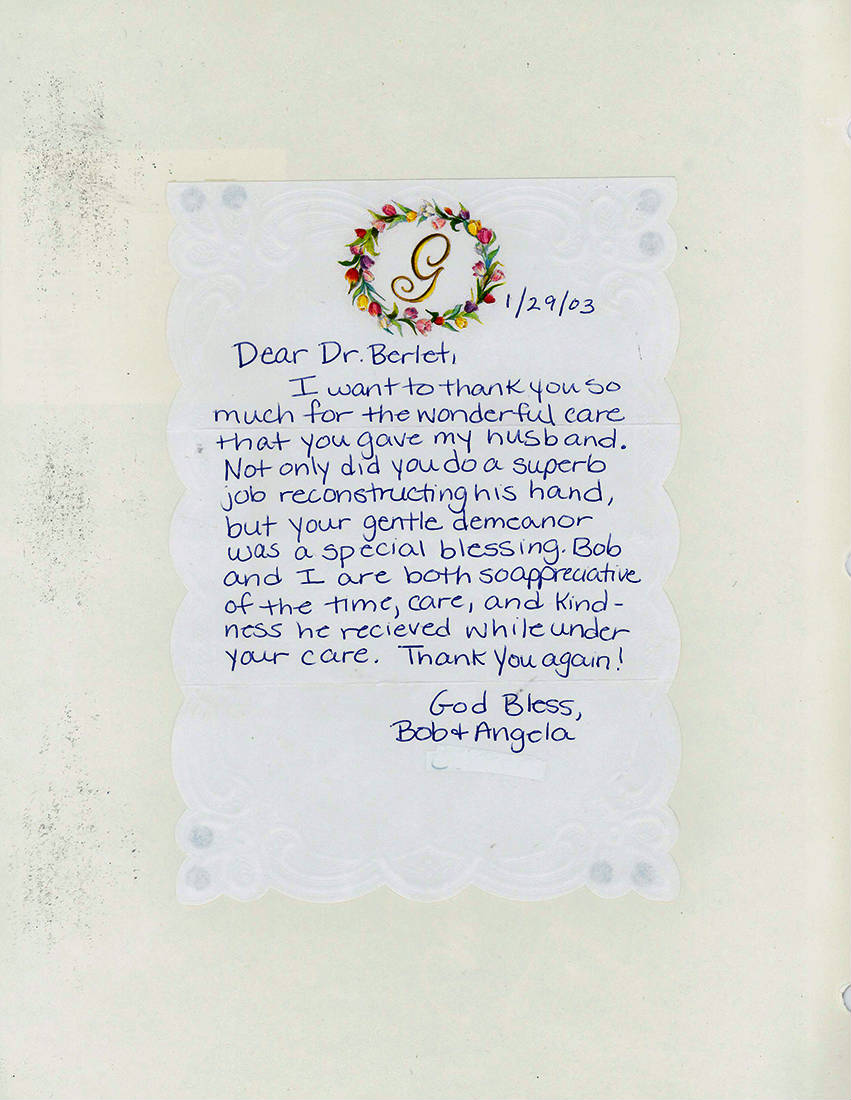 G
1/29/03
Dear Dr. Berlet,
I want to thank you so
much for the wonderful care
that you gave my husband.
Not only did you do a superb
job reconstructing his hand,
but your gentle demeanor
was a special blessing. Bob
and I are both so appreciative
of the time, care, and kind-
ness he recieved while under
your care. Thank you again!
God Bless,
Bob + Angela